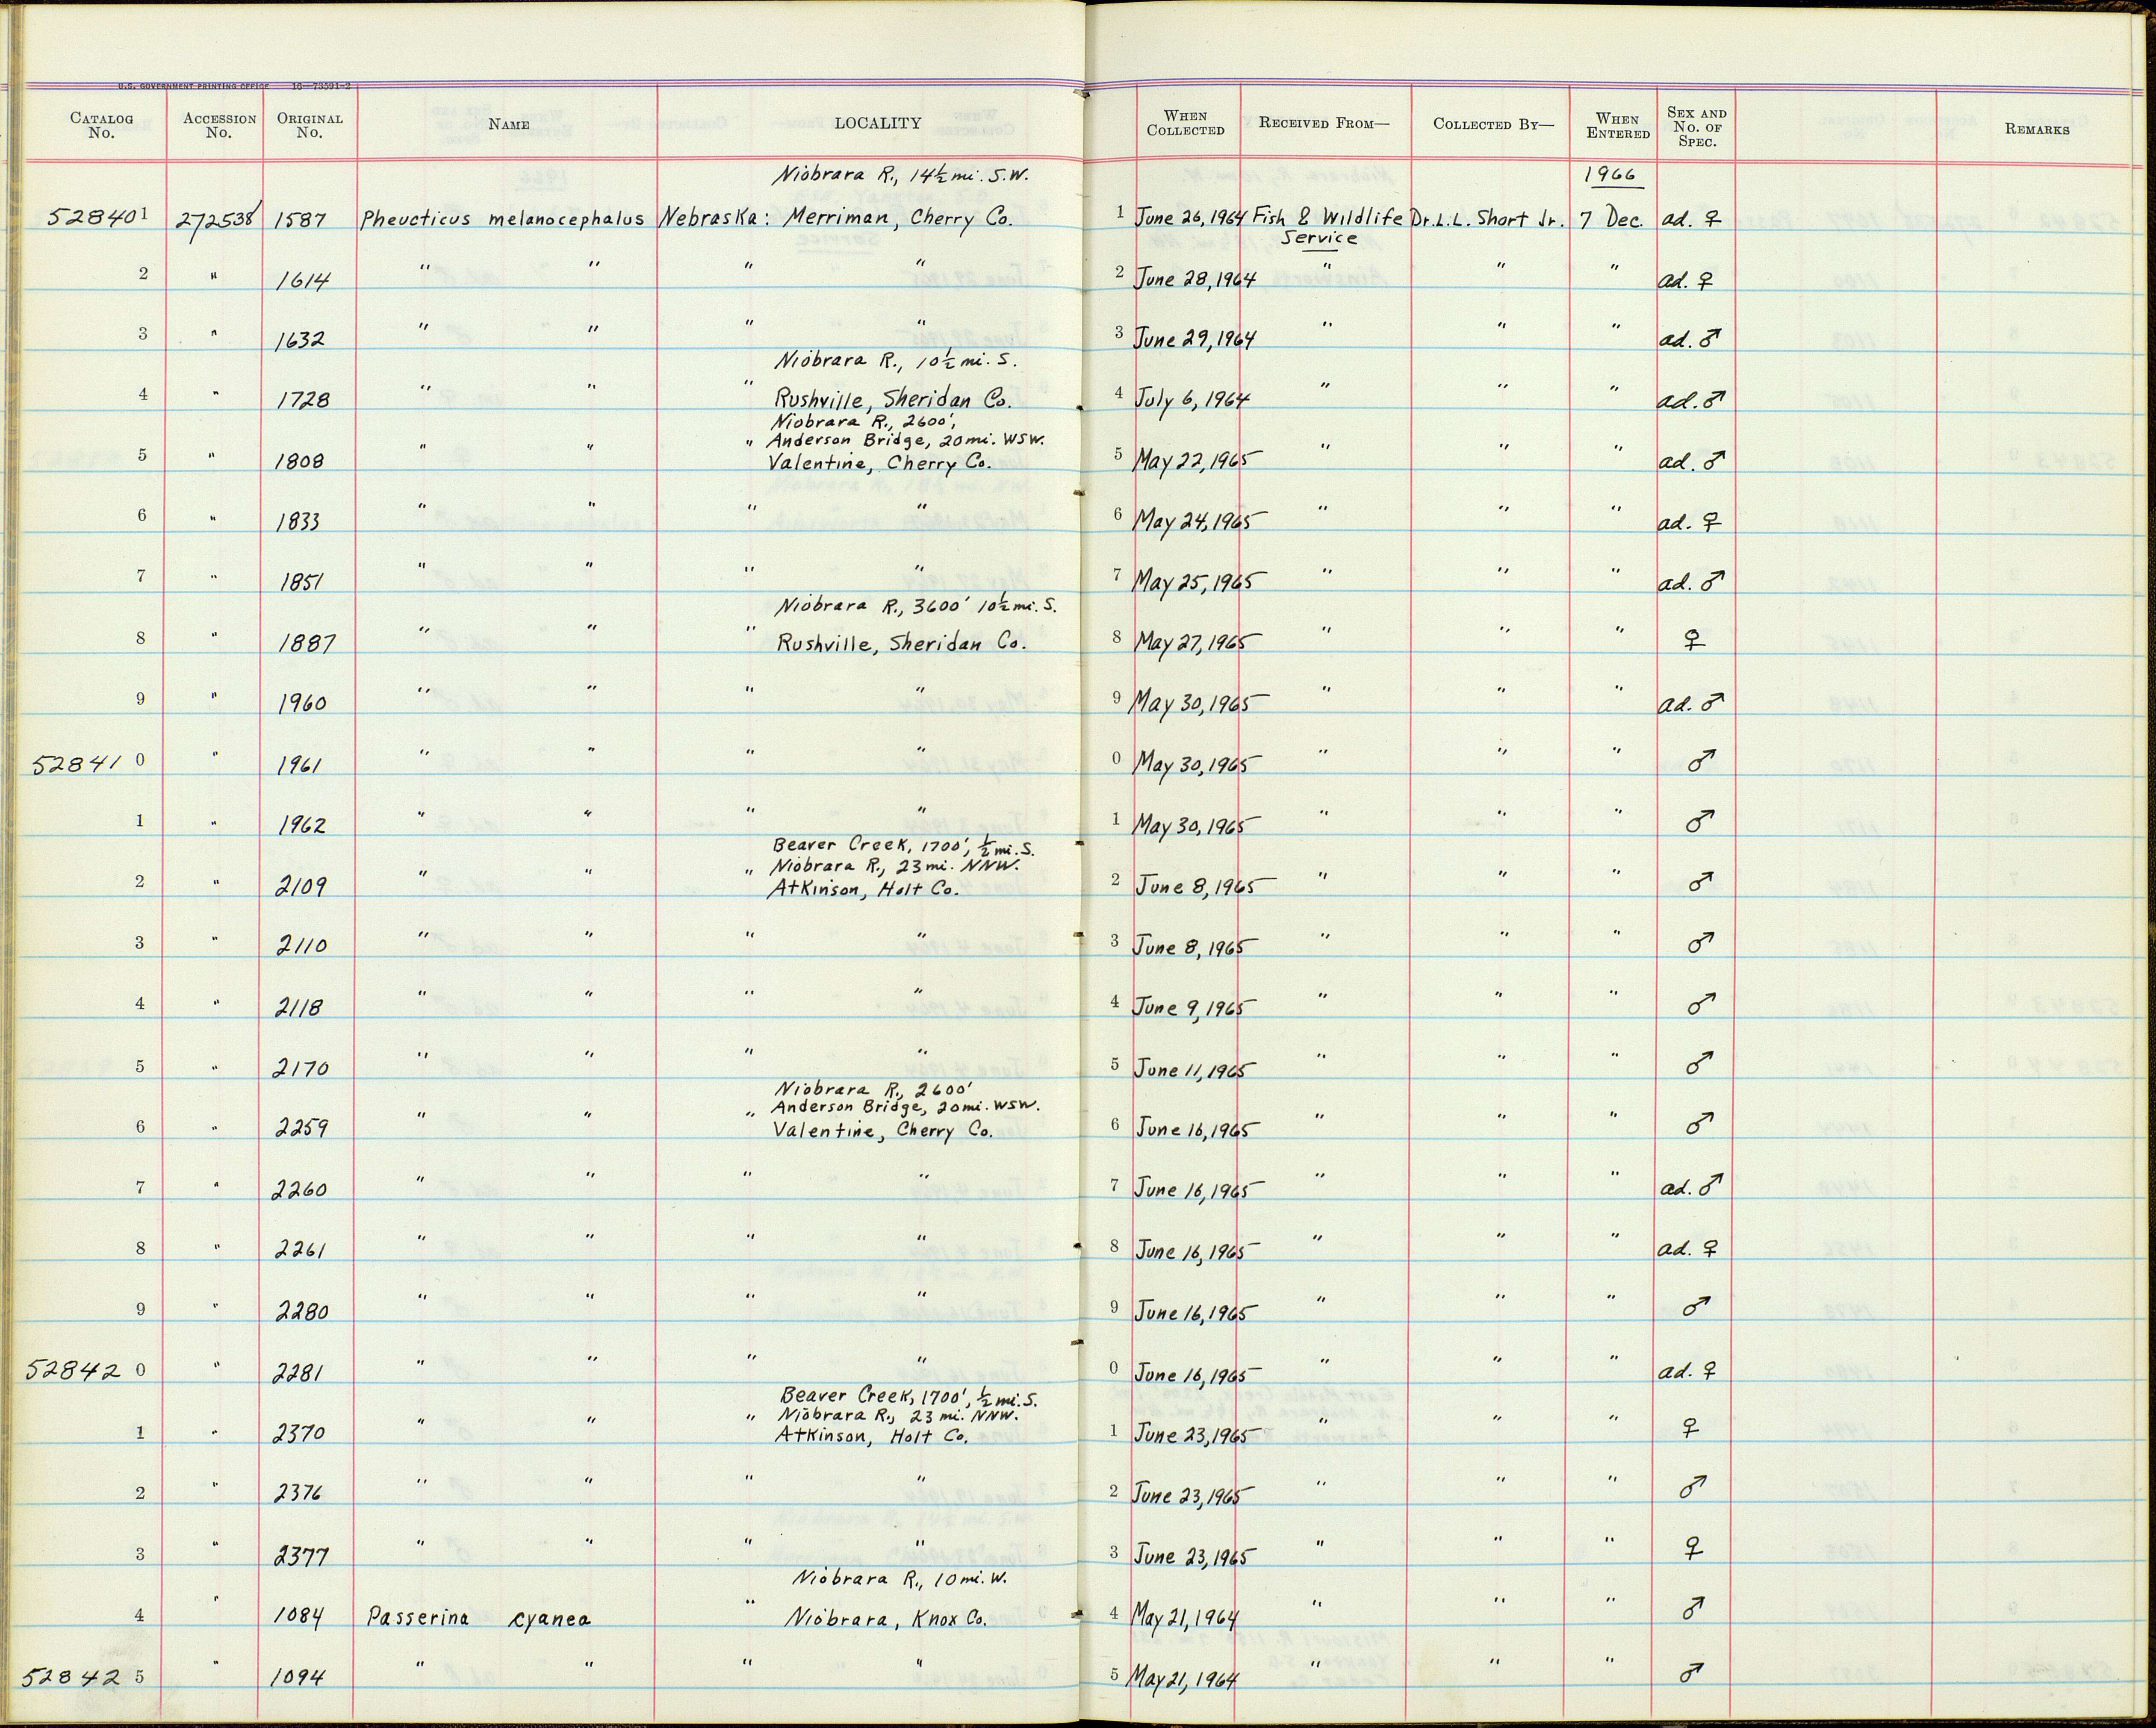 U.S. GOVERNMENT PRINTING OFFICE 16—73591-2
CATALOG No. ACCESSION No. ORIGINAL No. NAME LOCALITY WHEN COLLECTED RECEIVED FROM— COLLECTED BY— WHEN ENTERED SEX AND No. OF SPEC. REMARKS
Niobrara R., 14½ mi. S.W. 1966
528401 272538 1587 Pheucticus melanocephalus Nebraska: Merriman, Cherry Co. 1 June 26, 1964 Fish & Wildlife Service Dr. L.L. Short Jr. 7 Dec. ad. ♀
2 " 1614 " " " " 2 June 28, 1964 " " " ad. ♀
3 " 1632 " " " " 3 June 29, 1964 " " " ad. ♂
Niobrara R., 10½ mi. S.
4 " 1728 " " " Rushville, Sheridan Co. 4 July 6, 1964 " " " ad. ♂
Niobrara R., 2600',
" Anderson Bridge, 20 mi. WSW.
5 " 1808 " " Valentine, Cherry Co. 5 May 22, 1965 " " " ad. ♂
6 " 1833 " " " " 6 May 24, 1965 " " " ad. ♀
7 " 1851 " " " " 7 May 25, 1965 " " " ad. ♂
Niobrara R., 3600' 10½ mi. S.
8 " 1887 " " " Rushville, Sheridan Co. 8 May 27, 1965 " " " ♀
9 " 1960 " " " " 9 May 30, 1965 " " " ad. ♂
52841 0 " 1961 " " " " 0 May 30, 1965 " " " ♂
1 " 1962 " " " " 1 May 30, 1965 " " " ♂
Beaver Creek, 1700', ½ mi. S.
" Niobrara R., 23 mi. NNW.
2 " 2109 " " Atkinson, Holt Co. 2 June 8, 1965 " " " ♂
3 " 2110 " " " " 3 June 8, 1965 " " " ♂
4 " 2118 " " " " 4 June 9, 1965 " " " ♂
5 " 2170 " " " " 5 June 11, 1965 " " " ♂
Niobrara R., 2600'
" Anderson Bridge, 20 mi. WSW.
6 " 2259 " " Valentine, Cherry Co. 6 June 16, 1965 " " " ♂
7 " 2260 " " " " 7 June 16, 1965 " " " ad. ♂
8 " 2261 " " " " 8 June 16, 1965 " " " ad. ♀
9 " 2280 " " " " 9 June 16, 1965 " " " ♂
52842 0 " 2281 " " " " 0 June 16, 1965 " " " ad. ♀
Beaver Creek, 1700', ½ mi. S.
" Niobrara R., 23 mi. NNW.
1 " 2370 " " Atkinson, Holt Co. 1 June 23, 1965 " " " ♀
2 " 2376 " " " " 2 June 23, 1965 " " " ♂
3 " 2377 " " " " 3 June 23, 1965 " " " ♀
Niobrara R., 10 mi. W.
4 " 1084 Passerina cyanea " Niobrara, Knox Co. 4 May 21, 1964 " " " ♂
52842 5 " 1094 " " " " 5 May 21, 1964 " " " ♂